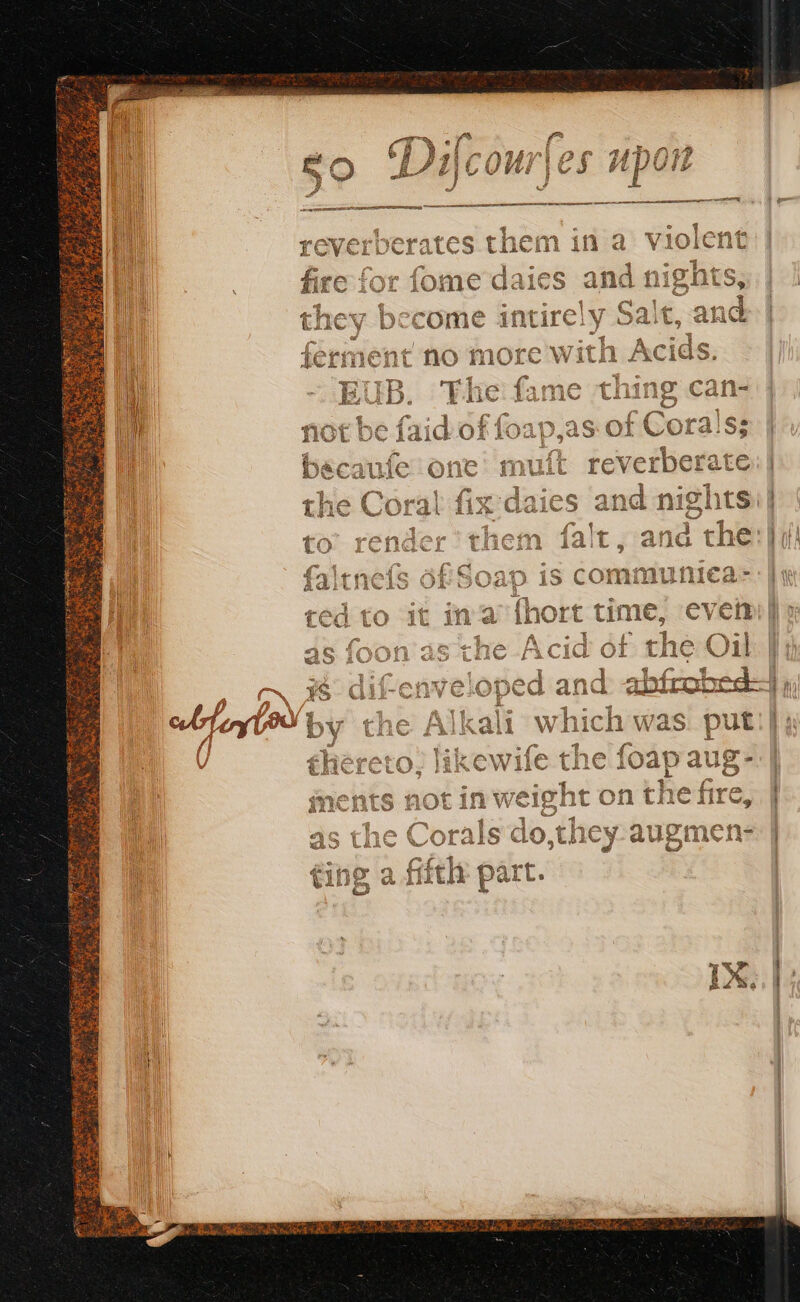 50 Diſcourſes upon
reverberates them in a violent
fire for ſome daies and nights,
they become intirely Salt, and
ferment no more with Acids.
EUB. The ſame thing can-
not be ſaid of ſoap,as of Corals;
becauſe one muſt reverberate
the Coral ſix daies and nights
to render them ſalt, and the
ſaltneſs of Soap is communica-
ted to it in a ſhort time, even
as ſoon as the Acid of the Oil
is diſ-enveloped and abſrobed
abſorbed by the Alkali which was put
thereto; likewiſe the ſoap aug-
ments not in weight on the fire,
as the Corals do,they augmen-
ting a fifth part.
IX.